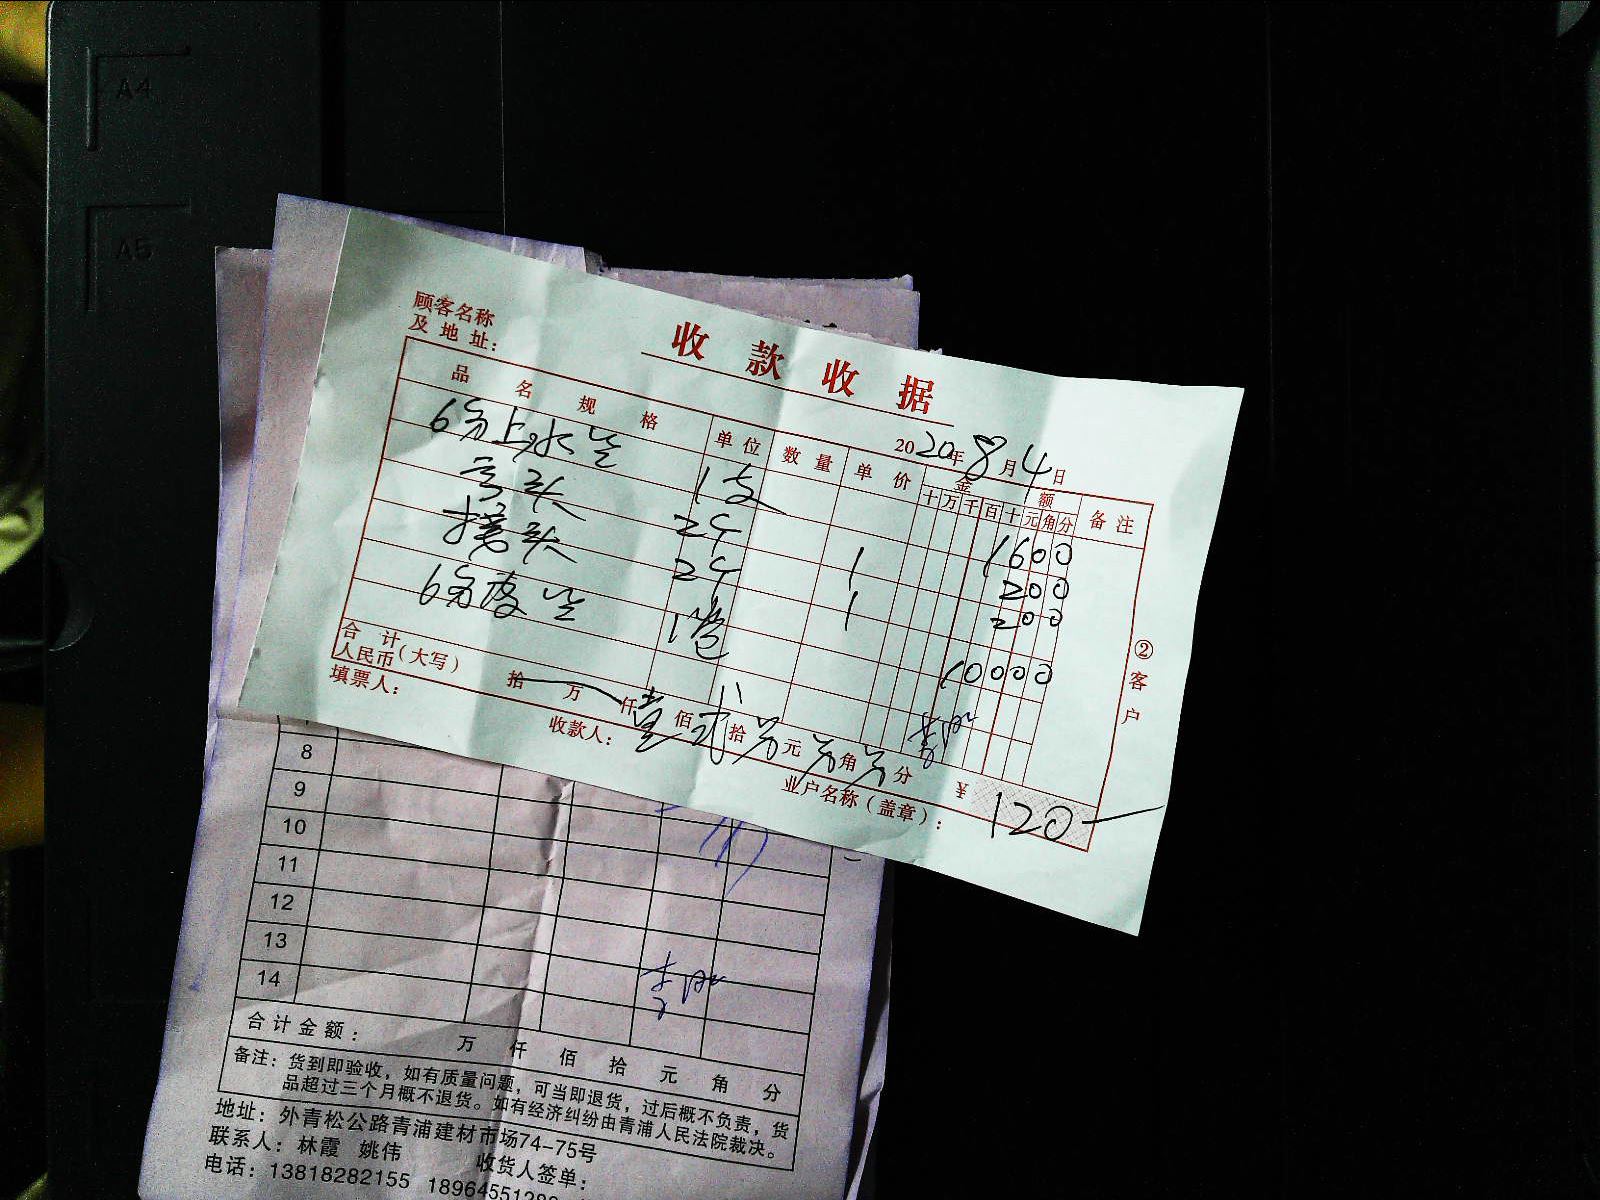 A4
A5
顾客名称
及地址：
收款收据
2020年8月4日
品名规格 单位 数量 单价 金额 备注
十万千百十元角分
6分上水管 1支 1600
弯头 2个 1 200
接头 2个 1 200
6分皮管 1卷 10000
合计
人民币（大写） 拾万仟壹佰贰拾另元另角另分
¥120
填票人：
收款人：
业户名称（盖章）：
②客户
8
9
10
11
12
13
14
合计金额： 万仟佰拾元角分
备注：货到即验收，如有质量问题，可当即退货，过后概不负责，货
品超过三个月概不退货。如有经济纠纷由青浦人民法院裁决。
地址：外青松公路青浦建材市场74-75号
联系人：林霞 姚伟
收货人签单：
电话：13818282155